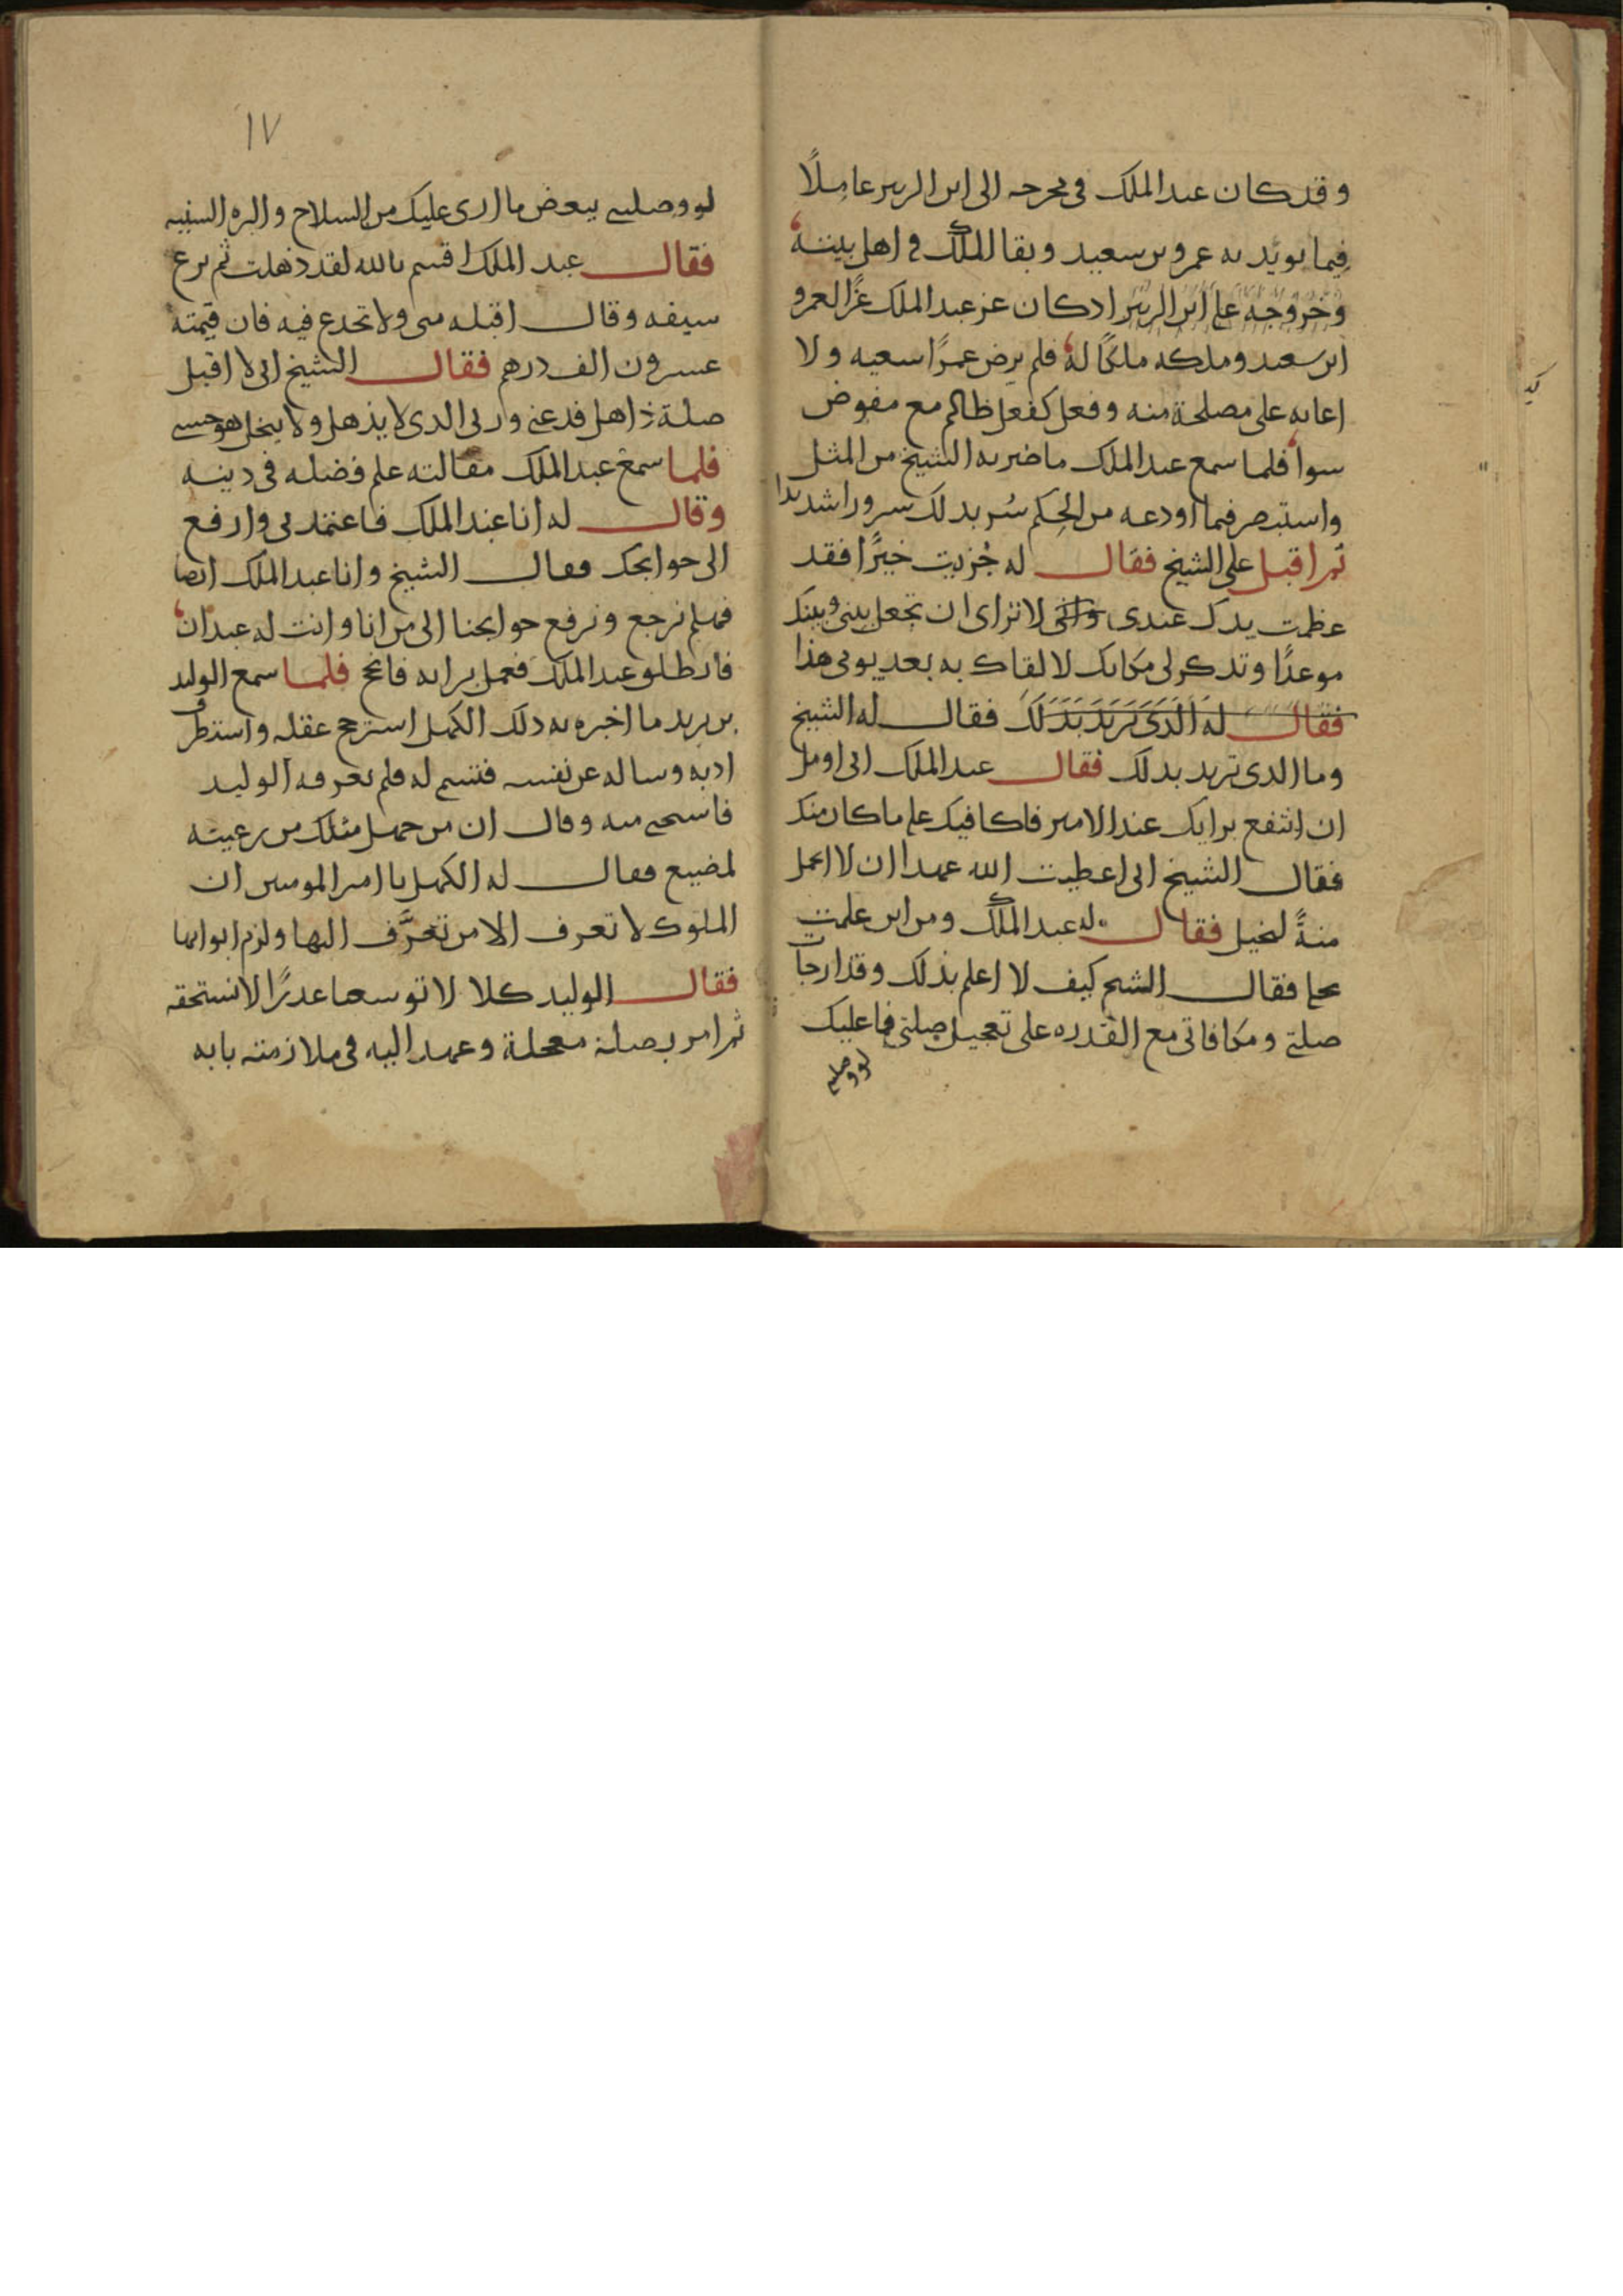 وقد كان عبد الملك في مخرجه الى ابن الزبير عاملًا
فيما يويد به عمرو بن سعيد وبقا للملك في اهل بيته
وخروجه على ابن الزبير اذ كان عز عبد الملك عزًا لعمرو
ابن سعيد وملكه ملكًا له فلم يرض عمرًا سعيه ولا
اعانه على مصلحة منه وفعل كفعل ظالم مع مفوض
سوا فلما سمع عبد الملك ما ضربه الشيخ من المثل
واستبصر فيما اودعه من الحِكم سُر بذلك سرورا شديدا
ثم اقبل على الشيخ فقال له جُزيت خيرًا فقد
عظمت يدك عندي واني لا تراى ان تجعل بيني وبينك
موعدًا وتذكر لي مكانك لالقاك به بعد يومي هذا
فقال له الذي تريد بذلك فقال له الشيخ
وما الذي تريد بذلك فقال عبد الملك اني اومل
ان انتفع برايك عند الامير فاكافيك على ما كان منك
فقال الشيخ اني اعطيت الله عهدا ان لا احمل
منةً لبخيل فقال له عبد الملك ومن اين علمت
بخلي فقال الشيخ كيف لا اعلم بذلك وقد ارجات
صلتي ومكافاتي مع القدره على تعجيل صلتي فما عليك
لو وصلتني
١٧
لو وصلتني ببعض ما ارى عليك من السلاح والبزه السنيه
فقال عبد الملك اقسم بالله لقد ذهلت ثم نزع
سيفه وقال اقبله مني ولا تخدع فيه فان قيمته
عشرون الف درهم فقال الشيخ اني لا اقبل
صلة ذاهل فدعني وربي الذي لا يذهل ولا يبخل هو حسبي
فلما سمع عبد الملك مقالته علم فضله في دينه
وقال له انا عبد الملك فاعتمد لي وارفع
الى حوايجك فقال الشيخ وانا عبد الملك ايضا
فهلم نرجع ونرفع حوايجنا الى من انا وانت له عبدان
فانطلق عبد الملك فعمل برايه فانجح فلما سمع الوليد
بن يزيد ما اخبره به ذلك الكهل استرجح عقله واستظرف
ادبه وساله عن نفسه فتسم له فلم يعرفه الوليد
فاستحى منه وقال ان من جهل مثلك من رعيته
لمضيع فقال له الكهل يا امير المومنين ان
الملوك لا تعرف الا من تعرَّف اليها ولزم ابوابها
فقال الوليد كلا لا توسعنا عذرًا لا نستحقه
ثم امر بصلة معجلة وعهد اليه في ملازمته بابه